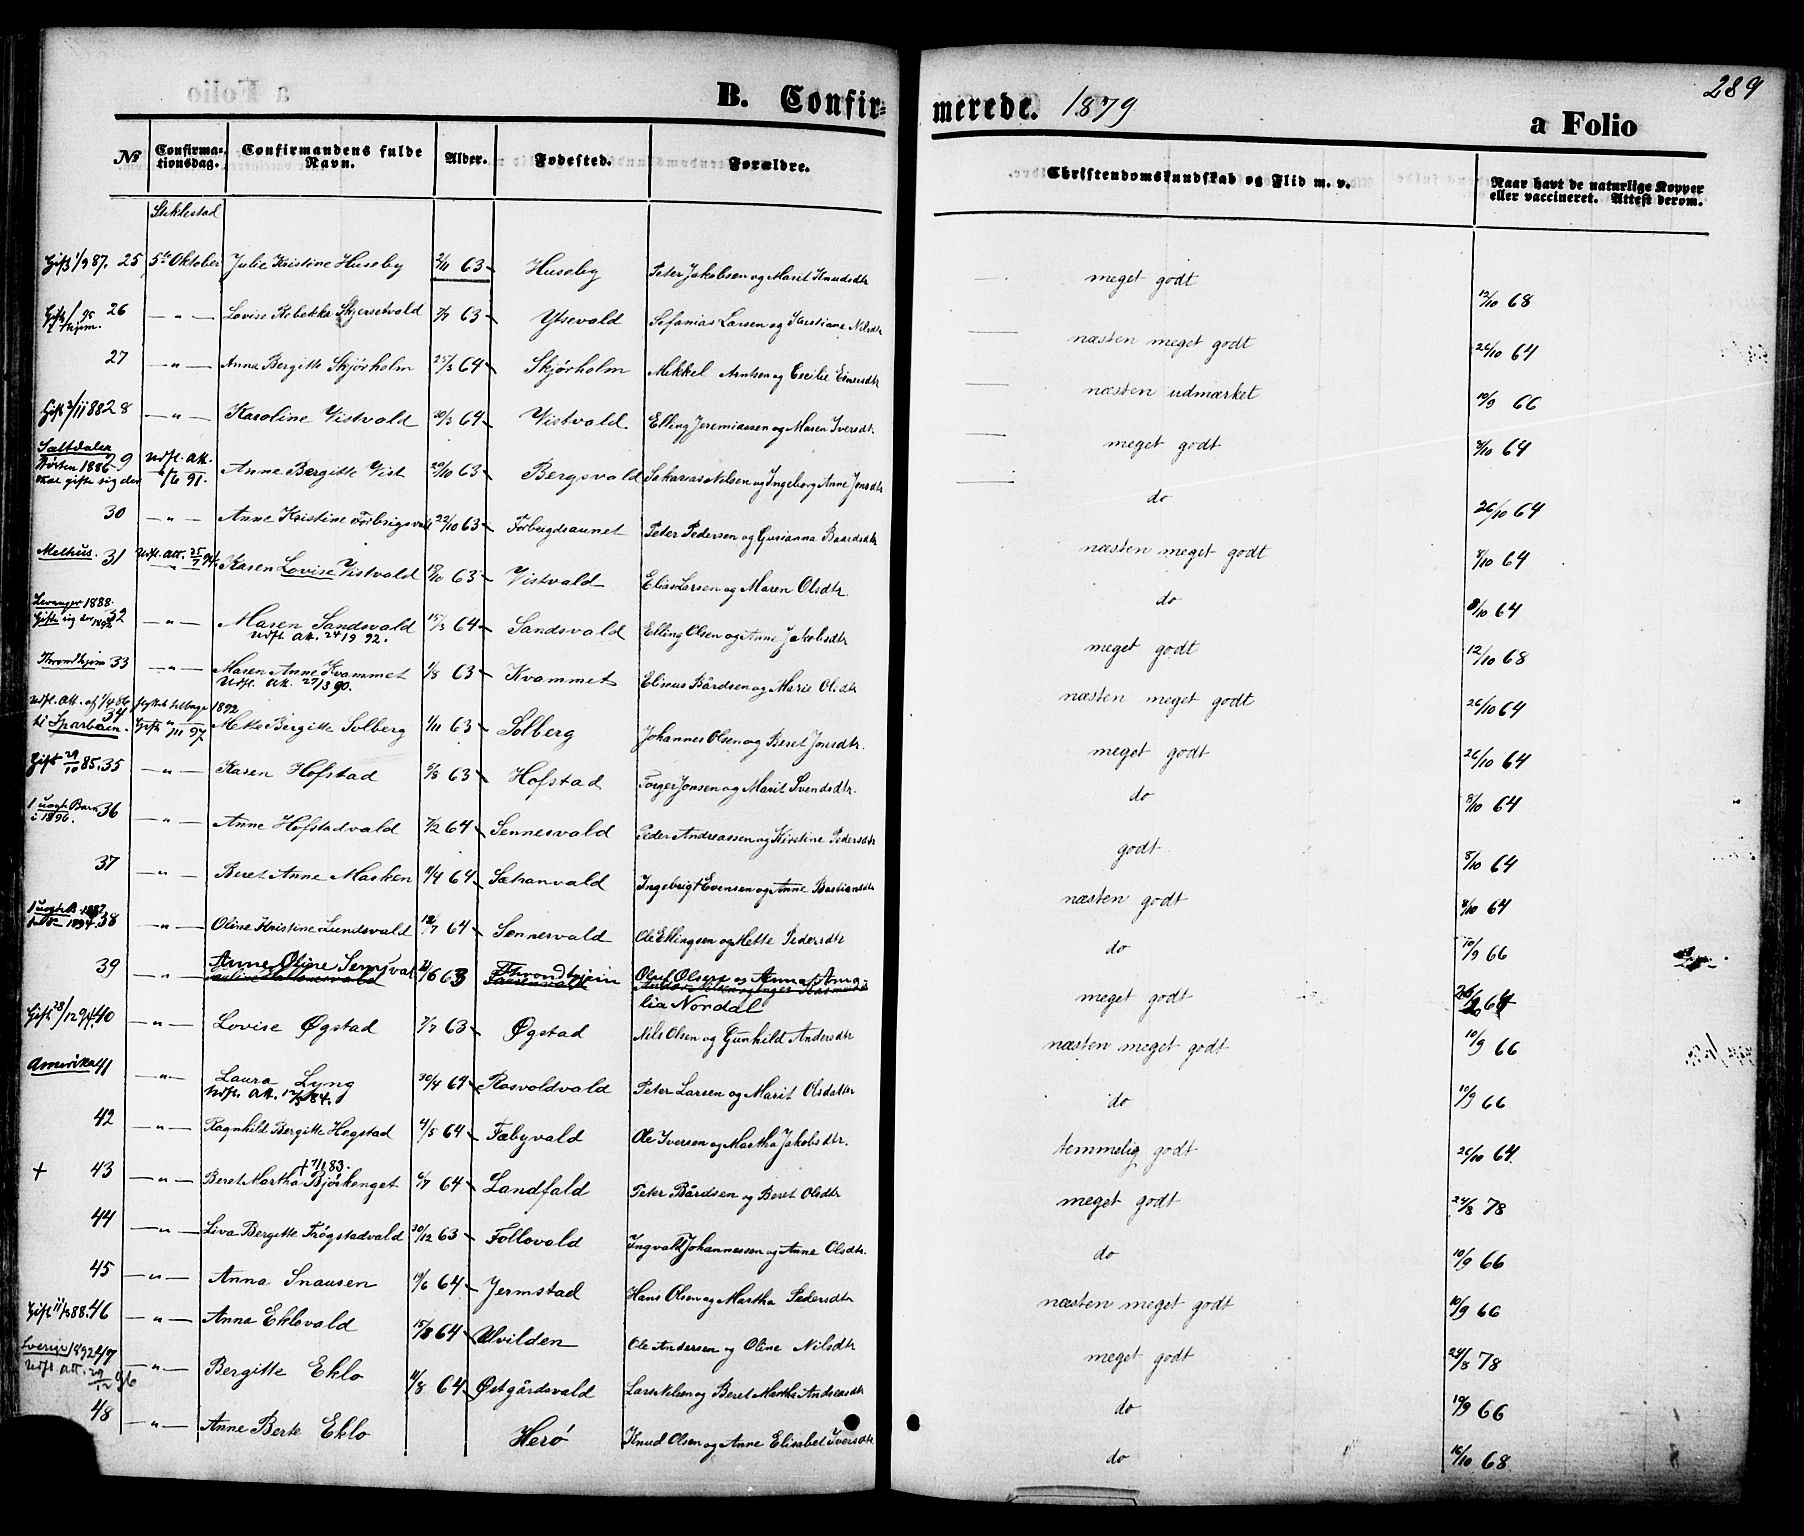 289
B. Confir=
merede. 1879
a Folio
№ Confirma-tionsdag. Confirmandens fulde Navn. Alder. Fødested. Forældre. Christendomskundskab og Flid m. v. Naar havt de naturlige Kopper eller vaccineret. Attest derom.
Stiklestad
Gift 1/9 87. 25 5te Oktober Julie Kristine Huseby 2/11 63 Huseby Peter Jakobsen og Marit Knudsdtr meget godt 12/10 68
26 — " — Lovise Rebekka Skjersetvald 7/7 63 Ytsevald Sefanias Larsen og Kirstiane Nilsdtr næsten meget godt 26/10 64
27 — " — Anna Bergitte Skjørholm 25/3 64 Skjørholm Mikkel Arntsen og Cecilie Einersdtr næsten udmærket 10/9 66
Gift 3/11 88 28 — " — Karoline Vistvald 30/3 64 Vistvald Elling Jeremiassen og Maren Iversdtr. meget godt 8/10 64
Saltdalen Høsten 1886 skal gifte sig der 29 Udfl. att. 4/6 91. Anne Bergitte Vist 29/10 63 Bergsvald Sakarias Nilsen og Ingeborg Anne Jonsdtr do 26/10 64
30 — " — Anne Kristine Forbrigsvald 22/10 63 Forbregdsaunet Peter Pedersen og Gurianna Baardsdtr næsten meget godt 8/10 64
Melhus. 31 Udfl. att. 25/7 94. Karen Lovise Vistvald 18/10 63 Vistvald Elias Larsen og Maren Olsdtr. do 8/10 64
Levanger 1888. Gifte sig der 1892 32 — " — Maren Sandsvald 15/3 64 Sandsvald Elling Olsen og Anne Jakobsdtr meget godt 12/10 68
Udfl. att. 24/9 92.
Throndhjem 33 — " — Maren Anne Kvammet 1/8 63 Kvammet Elinus Bårdsen og Marie Olsdtr næsten meget godt 26/10 64
Udfl. att. 27/3 90.
Udfl. att. af 1/4 86 flyttet tilbage 1892
til Sparbuen. 34 Gift /11 97. Mette Bergitte Solberg 1/11 63 Solberg Johannes Olsen og Beret Jonsdtr. meget godt 26/10 64
Gift 29/10 85. 35 — " — Karen Hofstad 5/8 63 Hofstad Torger Jonsen og Marit Svendsdtr. do 8/10 64
1 uægt Barn i 1896. 36 — " — Anne Hofstadvald 7/2 64 Sennesvald Peder Andreassen og Kirstine Pedersdtr godt 8/10 64
37 — " — Beret Anne Masken 9/4 64 Sætranvald Ingebrigt Evensen og Anne Bastiansdtr næsten godt 8/10 64
1894. 38 — " — Oline Kristine Lundsvald 18/7 64 Sennesvald Ole Ellingsen og Mette Pedersdtr do 10/9 66
39 — " — Anne Oline Semsvald 63 Throndhjem Oluf Olsen og Anna Amalia Nordal meget godt
Gift 28/12 94. 40 — " — Lovise Øgstad 7/7 63 Øgstad Nils Olsen og Gunhild Andersdtr næsten meget godt 10/9 66
Amerika 41 — " — Laura Lyng 30/4 64 Rosvoldvald Peter Larsen og Marit Olsdatter do 10/9 66
Udfl. att. 84.
42 — " — Ragnhild Bergitte Hegstad 4/5 64 Fæbyvald Ole Iversen og Martha Jakobsdtr. temmelig godt 26/10 64
† 7/1 83.
† 43 — " — Beret Martha Bjørkenget 6/7 64 Landfald Peter Bårdsen og Beret Olsdtr meget godt 24/8 78
44 — " — Liva Bergitte Trøgstadvald 30/12 63 Follovald Ingvald Johannessen og Anne Olsdtr. do 10/9 66
45 — " — Anna Snausen 19/6 64 Jermstad Hans Olsen og Martha Pedersdtr næsten meget godt 10/9 66
Gift 11/3 88. 46 — " — Anna Eklovald 15/8 64 Ulvilden Ole Andersen og Oline Nilsdtr meget godt 24/8 78
Sverige 1892 47 — " — Bergitte Eklo 11/8 64 Østgårdsvald Lars Nilsen og Beret Martha Andreasdtr do 10/9 66
Udfl. att. 29/12 96
48 — " — Anne Berte Eklo Herø Knud Olsen og Anne Elisabet Iversdtr do 16/10 68